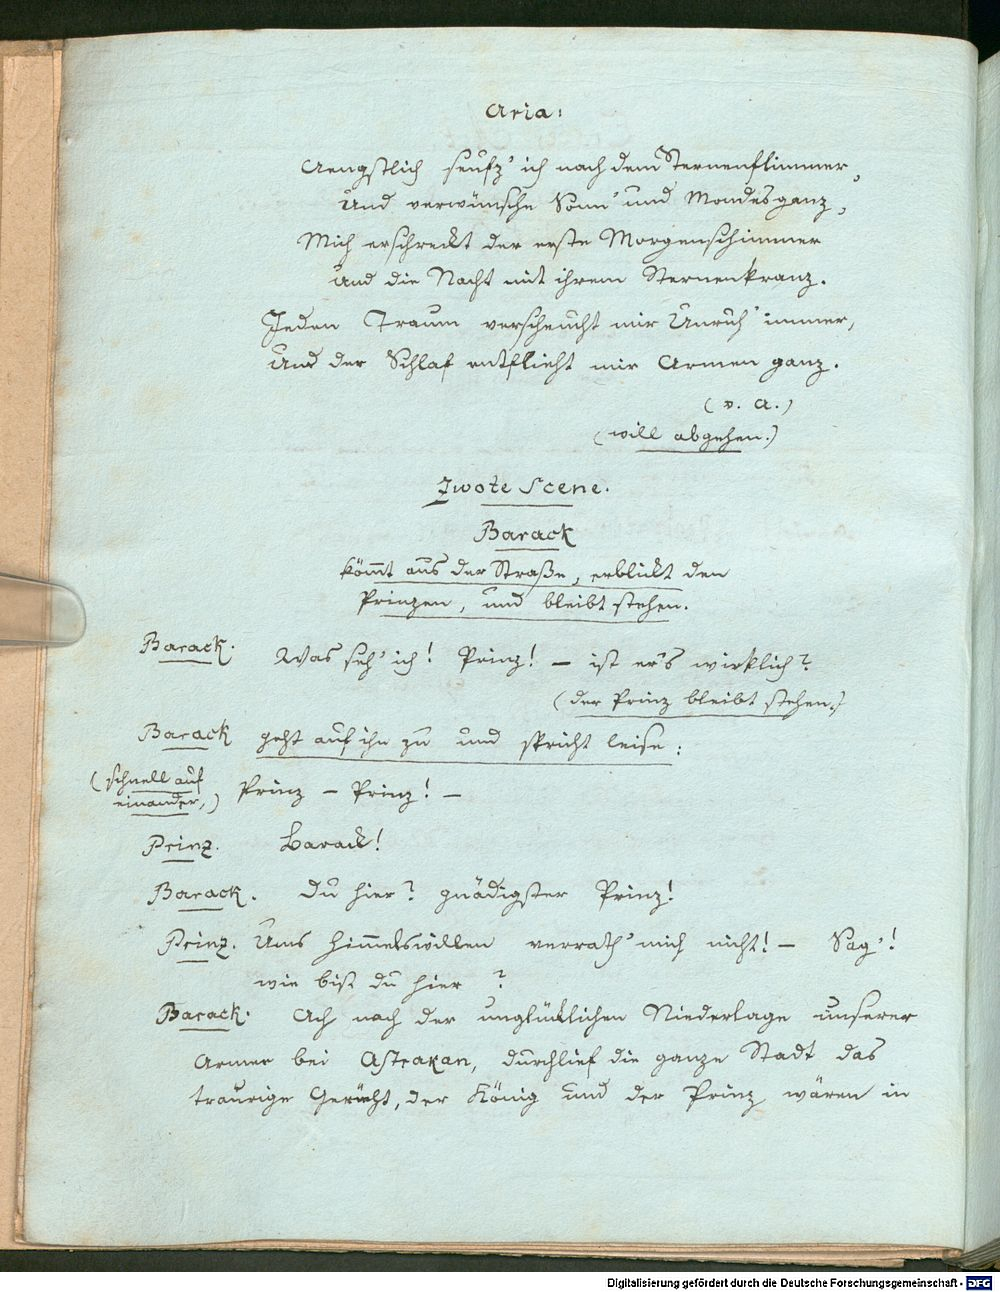 Aria:
Aengstlich seufz' ich nach dem Sternenflimmer,
Und verwünsche Sonn' und Mondesganz,
Mich erschreckt der erste Morgenschimmer
Und die Nacht mit ihrem Sternenkranz.
Jeden Traum verscheucht mir Unruh' immer,
Und der Schlaf entflieht mir Armen ganz.
(v. A.)
(will abgehen.)
Zwote Scene.
Barack
kömmt aus der Straße, erblickt den
Prinzen, und bleibt stehen.
Barack. Was seh' ich! Prinz! – ist er's wirklich?
(der Prinz bleibt stehen.)
Barack geht auf ihn zu und spricht leise:
(schnell auf einander,) Prinz – Prinz! –
Prinz. Barack!
Barack. Du hier? gnädigster Prinz!
Prinz. Ums Himmelswillen verrath' mich nicht! – Sag'!
wie bist du hier?
Barack. Ach nach der unglücklichen Niederlage unserer
Armee bei Astrakan, durchlief die ganze Stadt das
traurige Gerücht, der König und der Prinz wären in
Digitalisierung gefördert durch die Deutsche Forschungsgemeinschaft - DFG